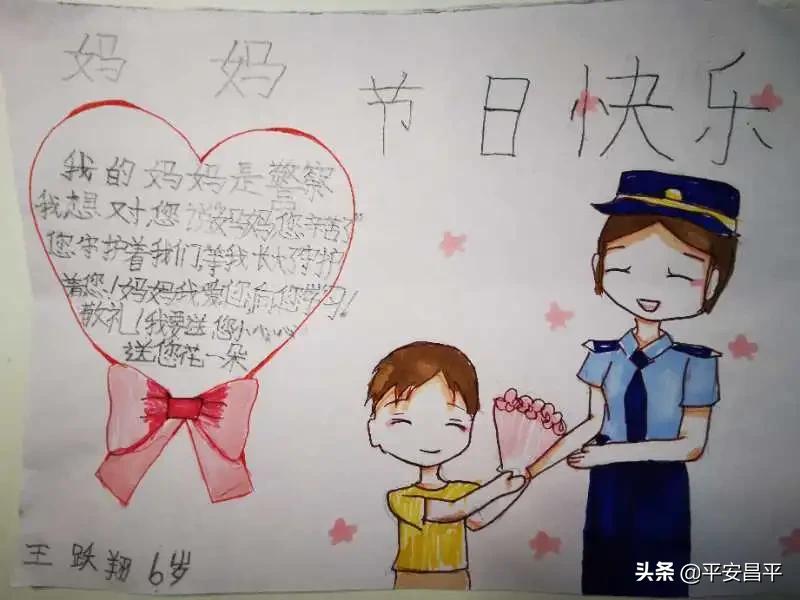 妈 妈 节日快乐
我的妈妈是警察
我想对您说妈妈您辛苦了
您守护着我们,等我长大了守护
着您!妈妈我爱您,向您学习!
敬礼!我要送您小心心
送您花一朵
王跃翔 6岁
头条 @平安昌平